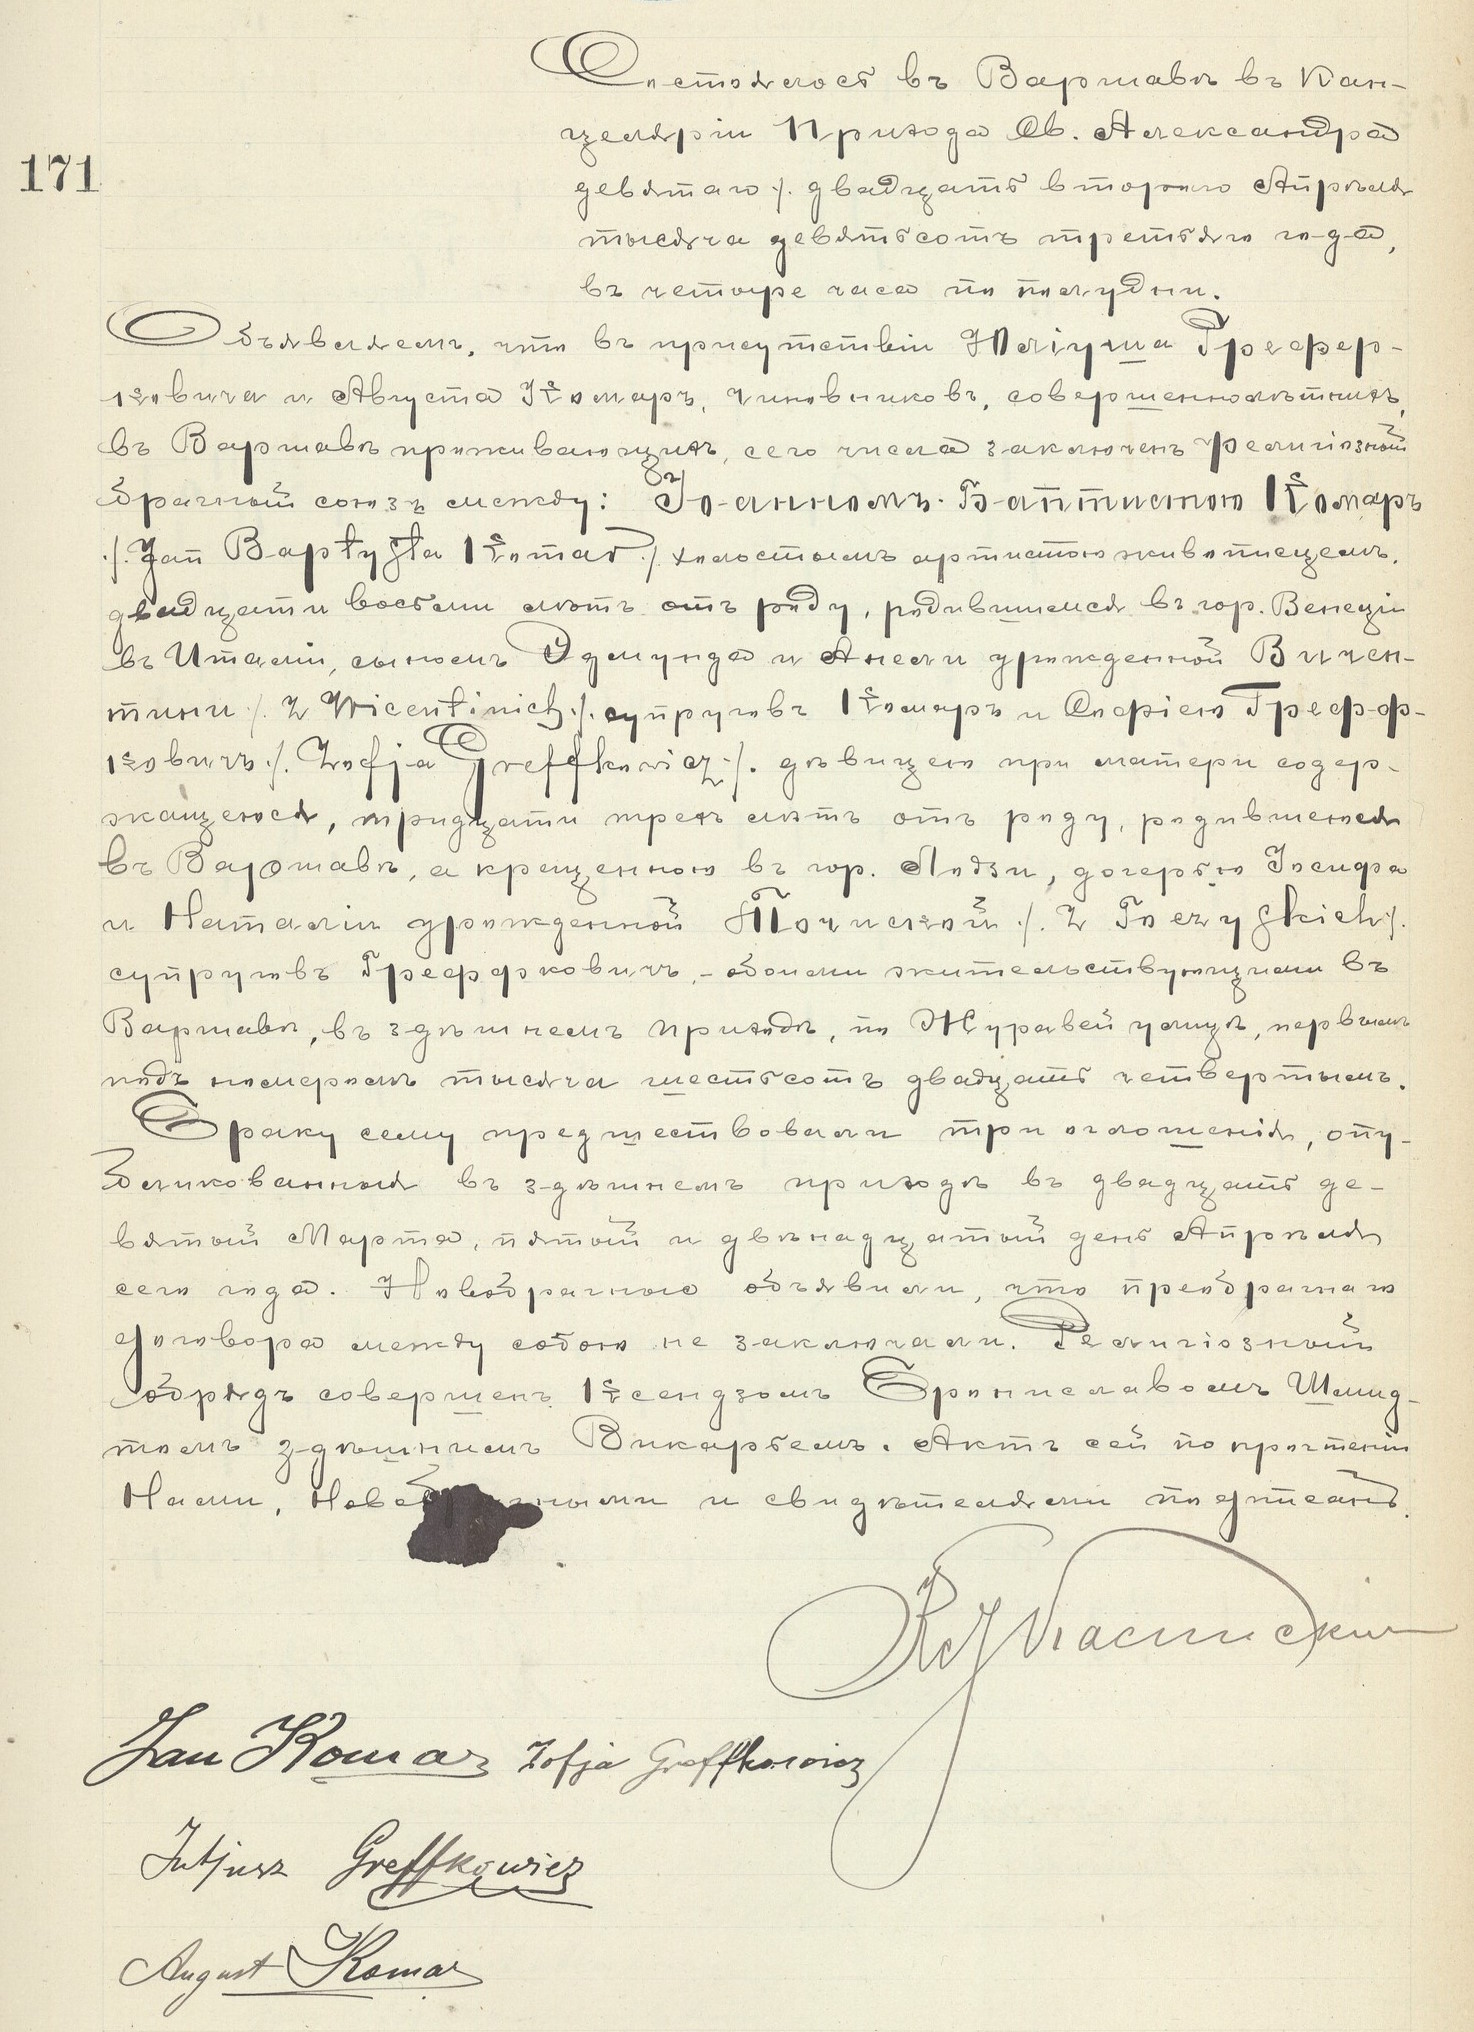 Состоялось въ Варшавѣ въ Кан-
целяріи Прихода Св. Александра
171
девятаго ./. двадцать второго Апрѣля
тысяча девятьсотъ третьяго года,
въ четыре часа по полудни.
Объявляемъ, что въ присутствіи Юліуша Греффер-
ковича и Августа Комаръ, чиновниковъ, совершеннолѣтнихъ,
въ Варшавѣ проживающихъ, сего числа заключенъ религіозный
брачный союзъ между: Іоанномъ-Баптистою Комаръ
./. Jan Baptysta Komar ./. холостымъ артистою живописцемъ,
двадцати восьми лѣтъ отъ роду, родившемся въ гор. Венеціи
въ Италіи, сыномъ Эдмунда и Анели урожденной Вичен-
тини ./. z Wicentinich ./. супруговъ Комаръ и Софіею Грефф-
ковичъ ./. Zofja Greffkowicz ./. дѣвицею при матери содер-
жащеюся, тридцати трехъ лѣтъ отъ роду, родившеюся
въ Варшавѣ, а крещенною въ гор. Лодзи, дочерью Іосифа
и Наталіи урожденной Точиской ./. z Toczyskich ./.
супруговъ Греффковичъ, - обоими жительствующими въ
Варшавѣ, въ здѣшнемъ приходѣ, по Журавей улицѣ, первымъ
подъ номеромъ тысяча шестьсотъ двадцать четвертымъ.
Браку сему предшествовали три оглошенія, опу-
бликованныя въ здѣшнемъ приходѣ въ двадцать де-
вятый Марта, пятый и двѣнадцатый день Апрѣля
сего года. Новобрачные объявили, что предбрачнаго
договора между собою не заключали. Религіозный
обрядъ совершенъ Ксендзомъ Брониславомъ Шмид-
томъ здѣшнимъ Викарьемъ. Актъ сей по прочтеніи
Нами, Новобрачными и свидѣтелями подписанъ.
Jan Komar Zofja Greffkowicz
Juljusz Greffkowicz
August Komar